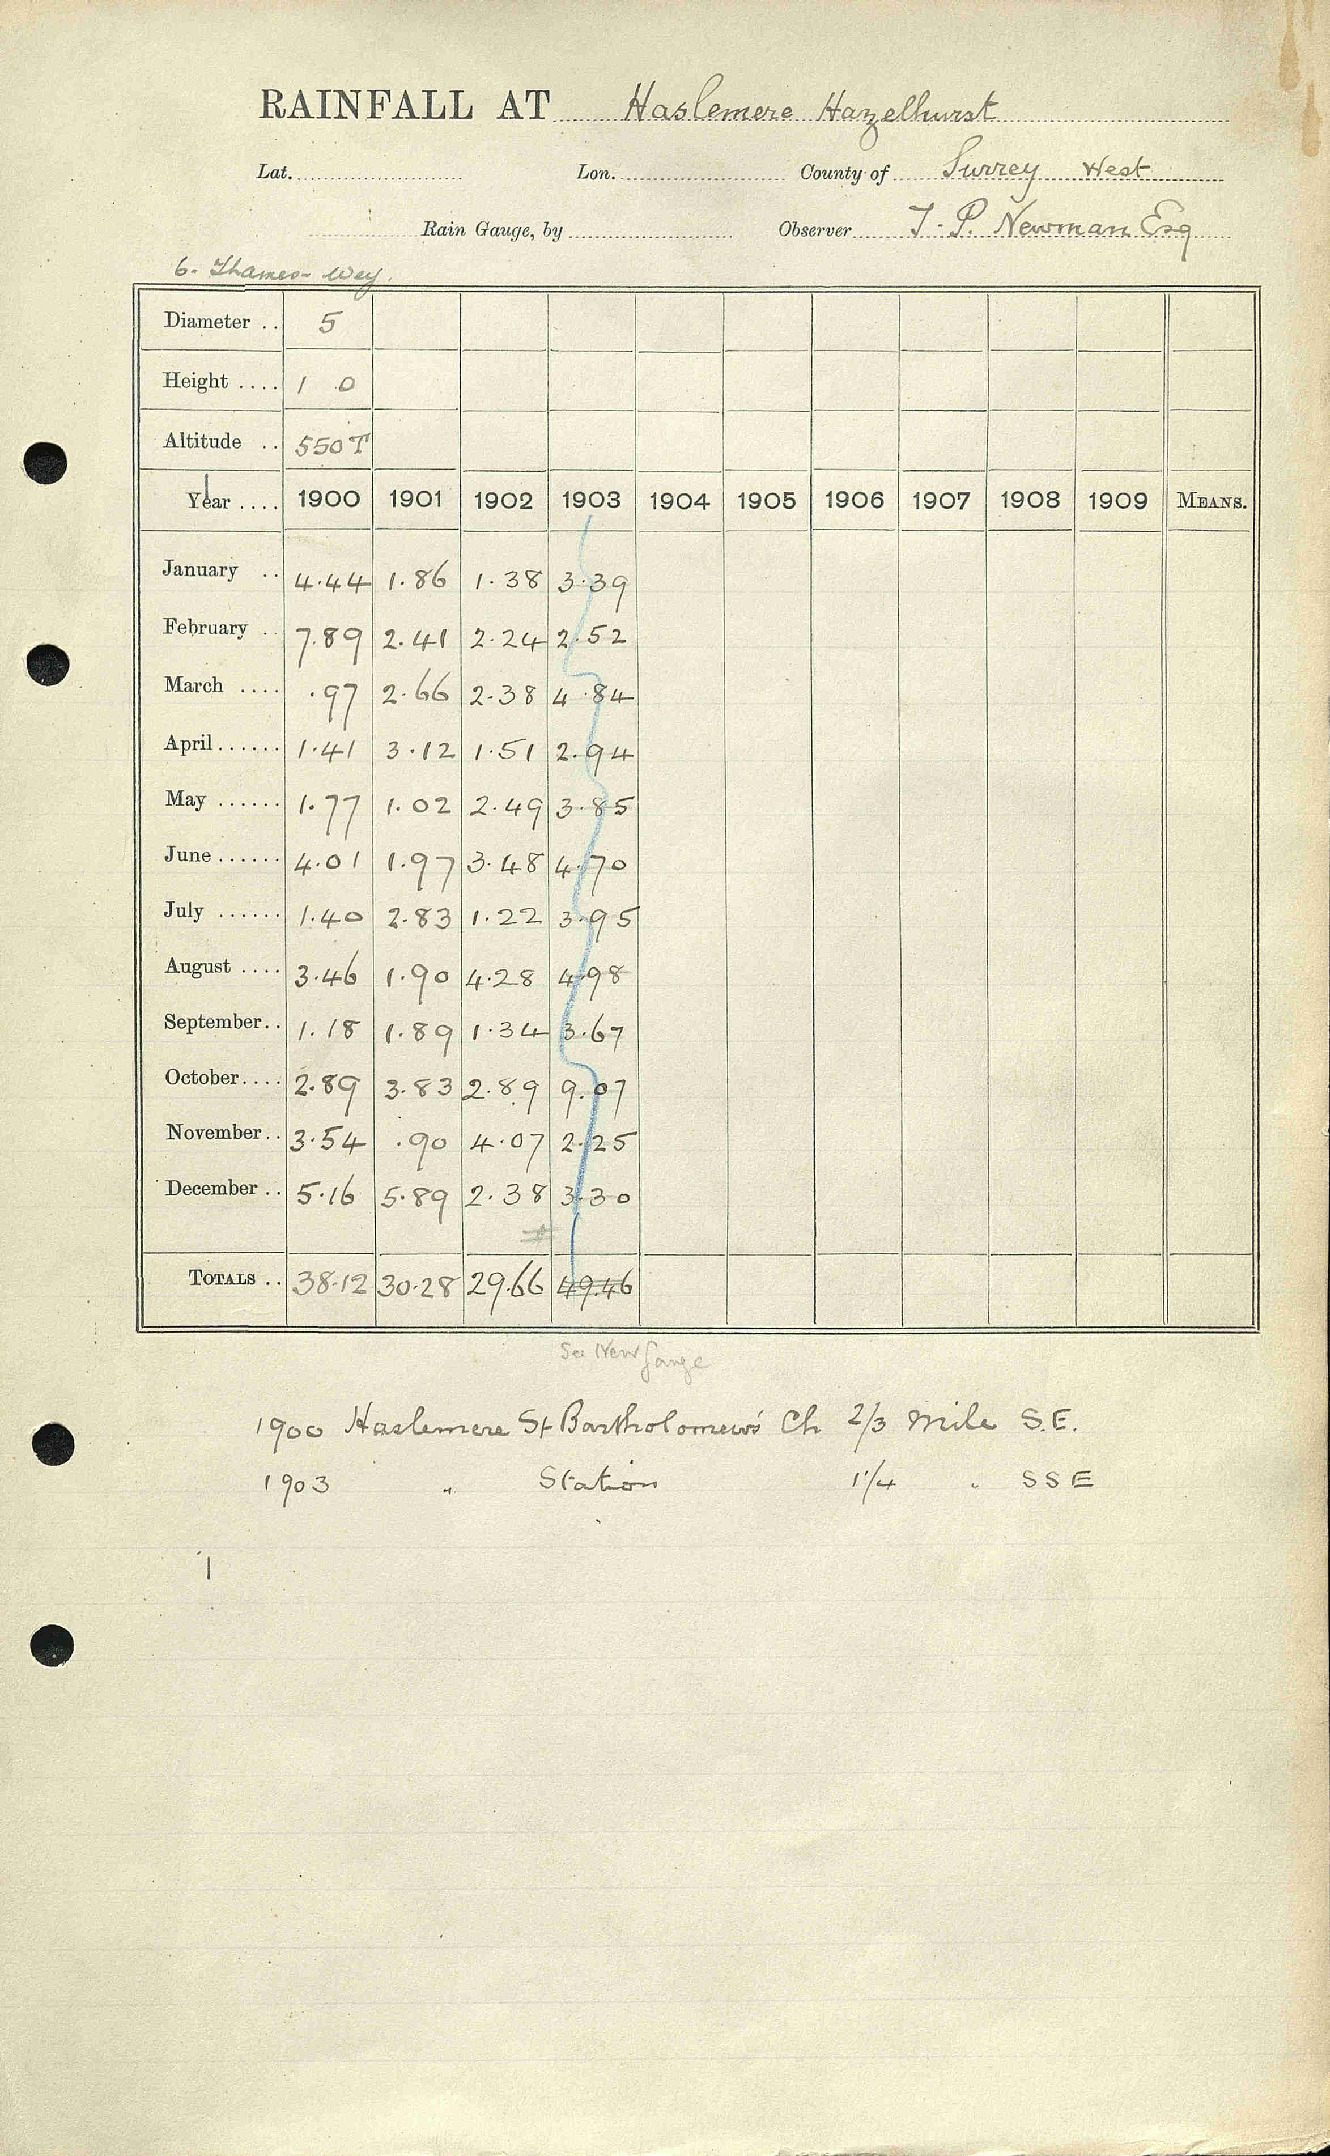 RAINFALL AT Haslemere Hazelhurst
Lat. Lon. County of Surrey West
Rain Gauge, by Observer T. P. Newman Esq
6. Thames - Wey.
Diameter .. 5
Height .... 1 0
Altitude .. 550T
Year .... 1900 1901 1902 1903 1904 1905 1906 1907 1908 1909 MEANS.
January .. 4.44 1.86 1.38 3.39
February .. 7.89 2.41 2.24 2.52
March .... .97 2.66 2.38 4.84
April ...... 1.41 3.12 1.51 2.94
May ...... 1.77 1.02 2.49 3.85
June ...... 4.01 1.97 3.48 4.70
July ...... 1.40 2.83 1.22 3.95
August .... 3.46 1.90 4.28 4.98
September .. 1.18 1.89 1.34 3.67
October .... 2.89 3.83 2.89 9.07
November .. 3.54 .90 4.07 2.25
December .. 5.16 5.89 2.38 3.30
TOTALS .. 38.12 30.28 29.66 49.46
See New Gauge
1900 Haslemere St Bartholomew's Ch 2/3 Mile S.E.
1903 " Station 1 1/4 " S S E